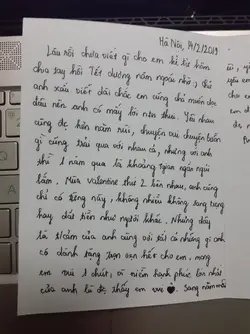 Hà Nội, 14/2/2019
Lâu rồi chưa viết gì cho em kể từ hôm
chia tay hồi Tết dương năm ngoái nhỉ, thư
anh xấu viết dài chắc em cũng chả muốn đọc
đâu nên anh có mấy lời như thư. Yêu nhau
cũng đc hơn năm rưỡi, chuyện vui chuyện buồn
gì cũng trải qua với nhau cả, nhưng với anh
thế 1 năm qua là khoảng tgian ngắn ngủi
lắm. Mùa valentine thứ 2 bên nhau, anh cũng
chỉ có từng này, không nhiều không sang trọng
hay đắt tiền như người khác. Nhưng đây
là t/cảm của anh cũng với tất cả những gì anh
có dành tặng trọn vẹn hết cho em, mong
em vui 1 chút, vì niềm hạnh phúc lớn nhất
của anh là đc thấy em vui ♥. Sang năm mới